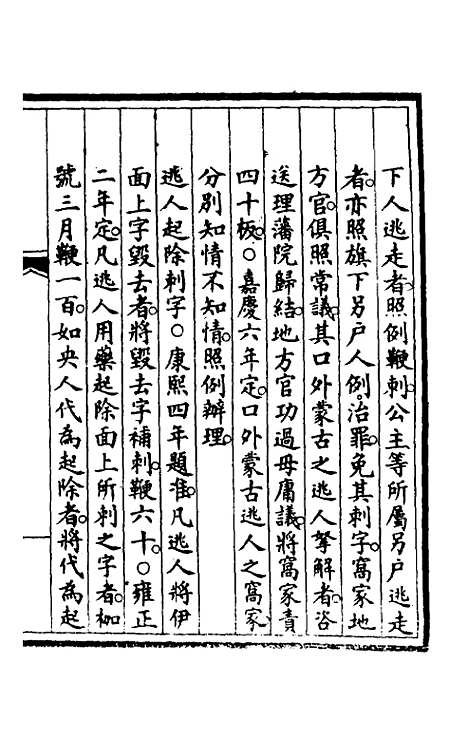 下人逃走者。照例鞭刺。公主等所屬另户逃走
者。亦照旗下另户人例。治罪。免其刺字。窩家地
方官。俱照常議。其口外蒙古之逃人拏解者。咨
送理藩院歸結。地方官功過毋庸議。將窩家責
四十板。○嘉慶六年定。口外蒙古逃人之窩家
分别知情不知情。照例辦理。
逃人起除刺字○康熙四年題准。凡逃人將伊
面上字毁去者。將毁去字補刺。鞭六十。○雍正
二年定。凡逃人用藥起除面上所刺之字者。枷
號三月鞭一百。如央人代為起除者。將代為起